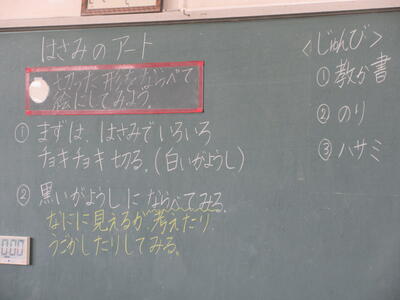 はさみのアート
切った形をならべて
絵にしてみよう。
① まずは、はさみでいろいろ
チョキチョキ切る。(白いがようし)
② 黒いがようしにならべてみる。
なにに見えるか考えたり
うごかしたりしてみる。
<じゅんび>
① 教か書
② のり
③ ハサミ
0:00